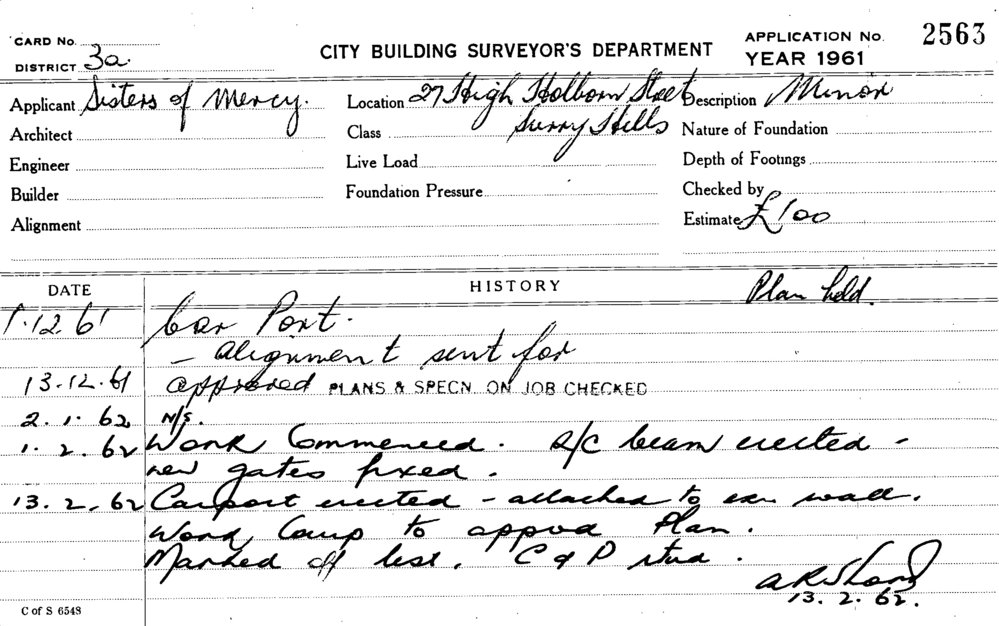 CARD No.
DISTRICT 3a
CITY BUILDING SURVEYOR'S DEPARTMENT
APPLICATION No. 2563
YEAR 1961
Applicant Sisters of Mercy. Location 27 High Holborn Street Description Minor
Architect Class Surry Hills Nature of Foundation
Engineer Live Load Depth of Footings
Builder Foundation Pressure Checked by
Alignment Estimate £100
DATE HISTORY Plan held.
1.12.61 Car Port.
- alignment sent for
13.12.61 approved PLANS & SPECN. ON JOB CHECKED
2.1.62 N/S.
1.2.62 Work Commenced. beam erected -
new gates fixed.
13.2.62 Carport erected - attached to wall.
Work Comp to appvd Plan.
Marked off list. C & P
13.2.62.
C of S 6548